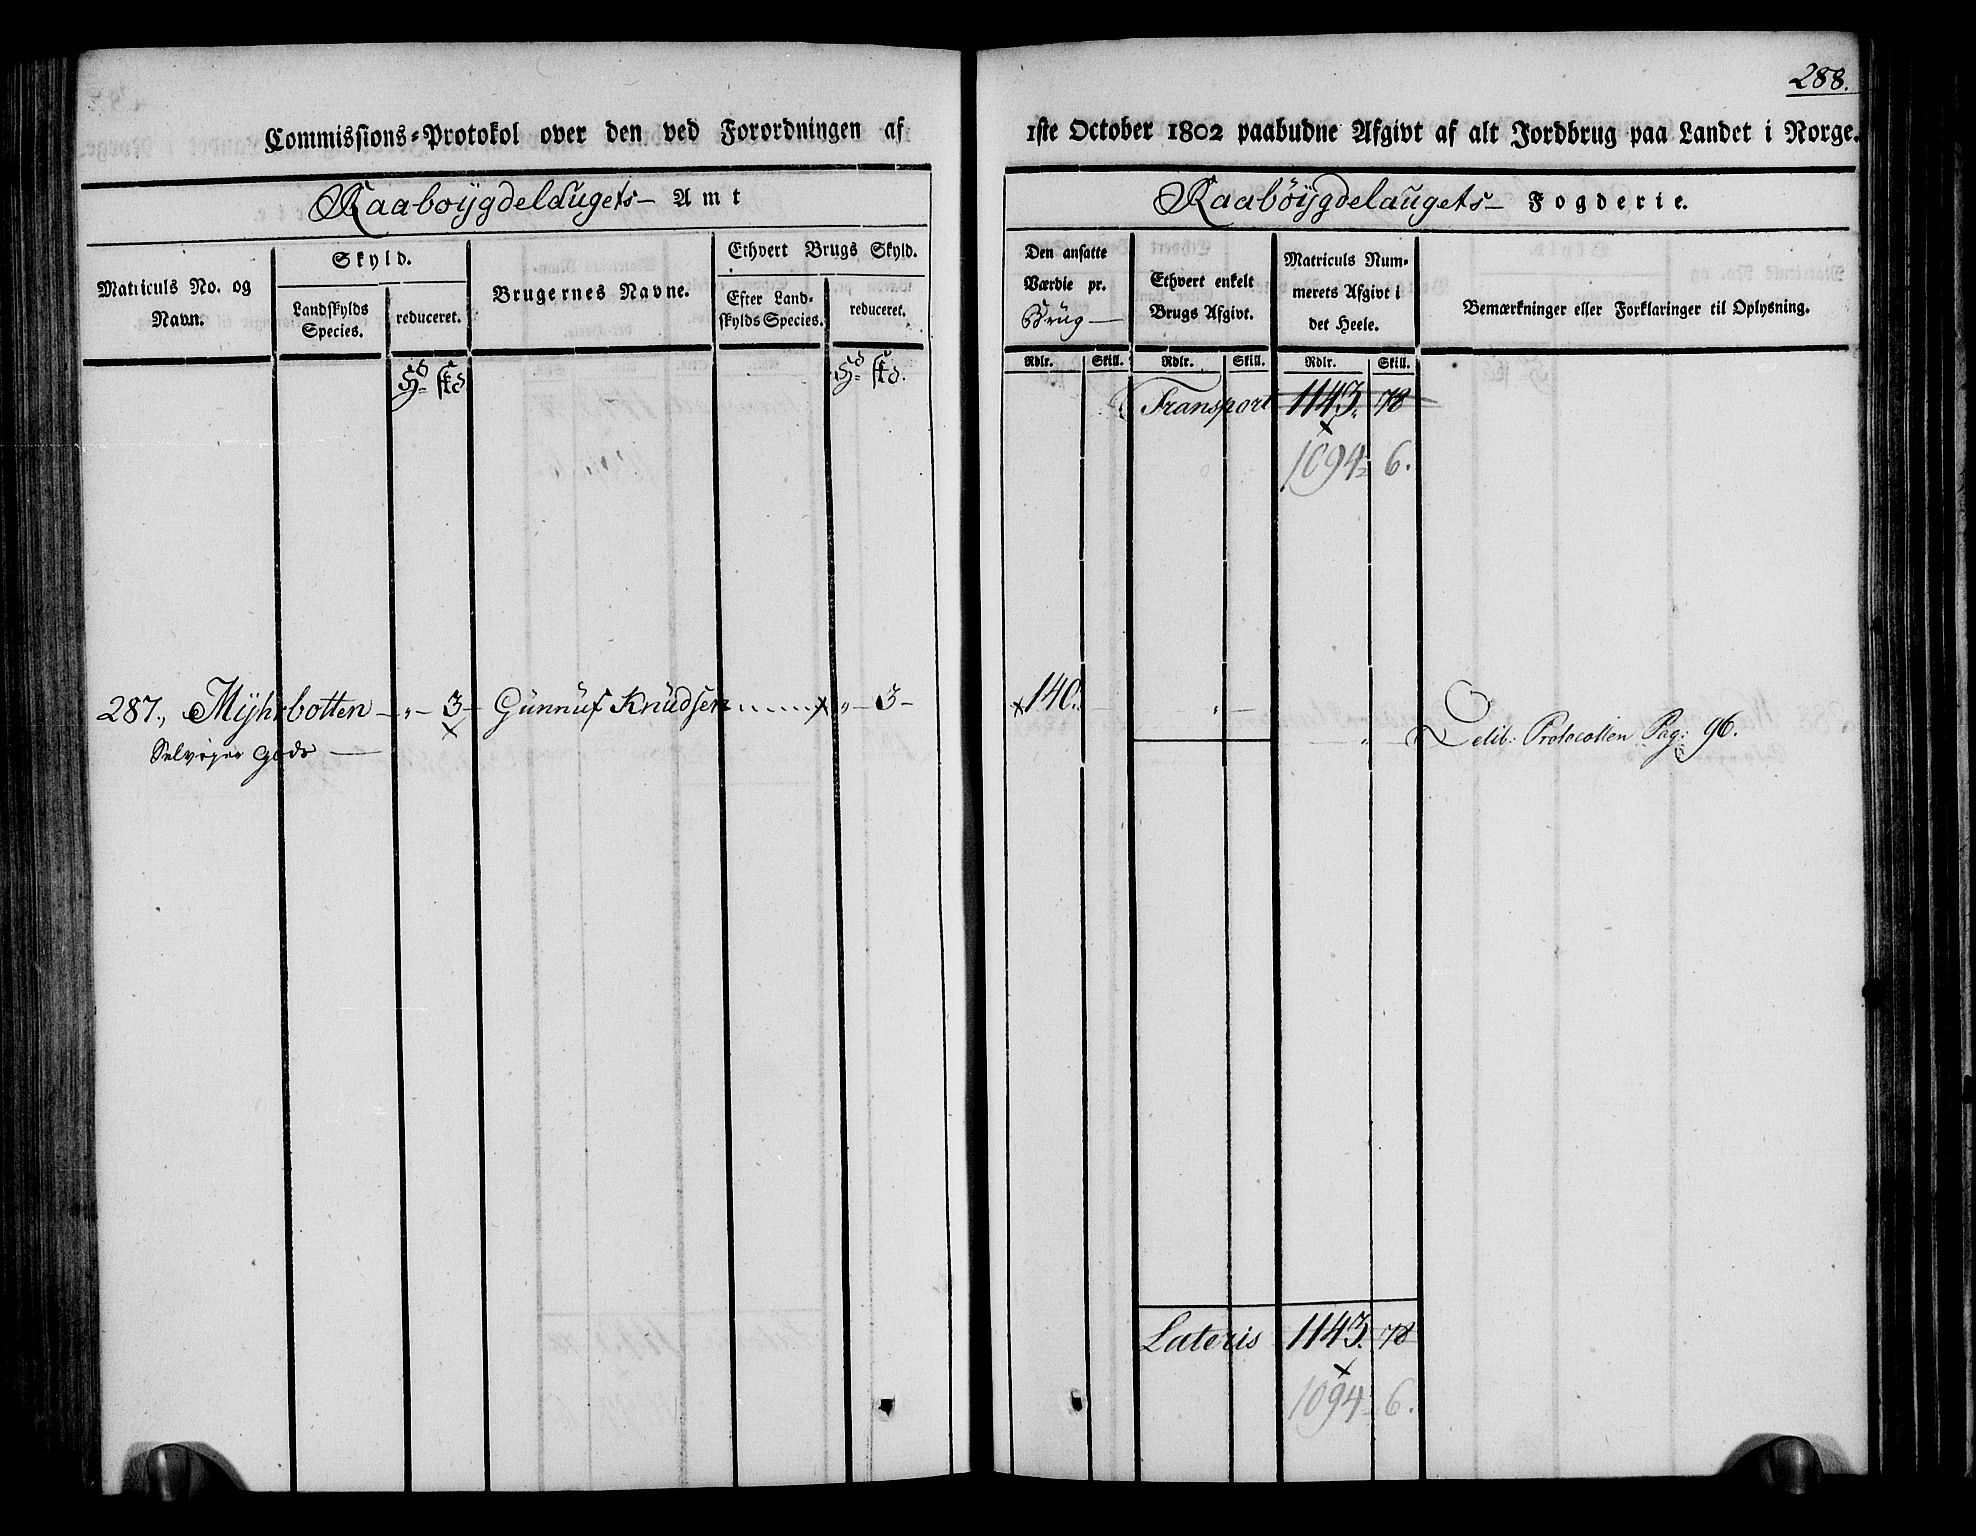 288.
Commissions-Protokol over den ved Forordningen af 1ste October 1802 paabudne Afgivt af alt Jordbrug paa Landet i Norge.
Raabøygdelaugets- Amt
Raabøygdelaugets- Fogderie.
Matriculs No. og
Navn.
Skyld.
Landskylds
Species.
reduceret.
Brugernes Navne.
Ethvert Brugs Skyld.
Efter Land-
skylds Species.
reduceret.
Den ansatte
Værdie pr.
Brug
Ethvert enkelt
Brugs Afgivt.
Matriculs Num-
merets Afgivt i
det Heele.
Bemærkninger eller Forklaringer til Oplysning.
Rdlr. Skill. Rdlr. Skill. Rdlr. Skill.
Transport 1143. 78
1094. 6.
287., Myhrbotten - „ - 3 - Gunnuf Knudsen „ - 3 - 140. „ -
Selveyer Gods „ Delib: Protocollen Pag: 96.
Lateris 1143. 78
1094 6.